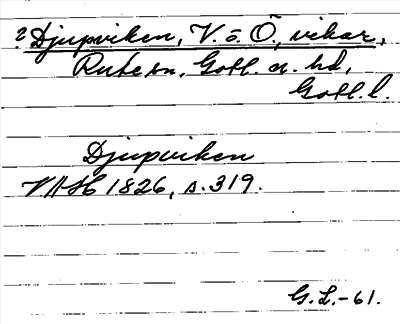 ? Djupviken, V. o. Ö, vikar,
Rute sn, Gotl. n. hd,
Gotl. l.
Djupviken
VAH 1826, s. 319.
G.L.-61.